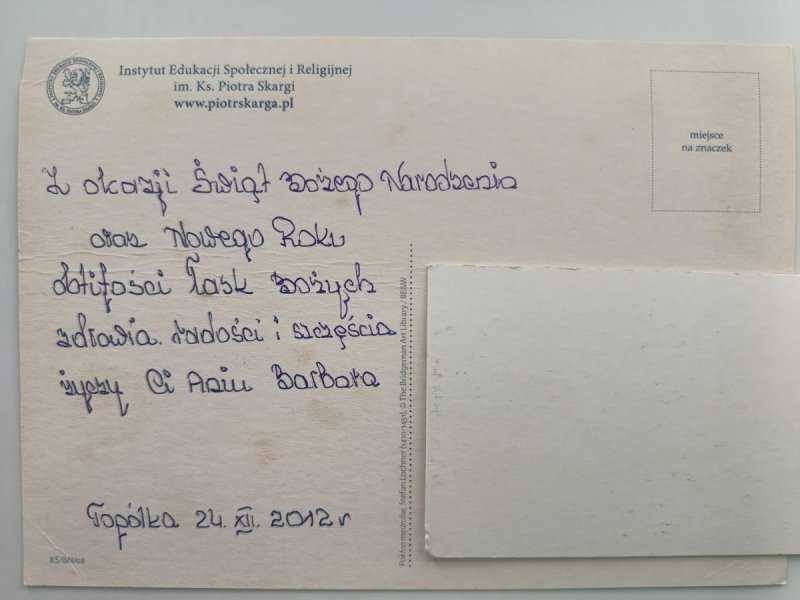 Instytut Edukacji Społecznej i Religijnej
im. Ks. Piotra Skargi
www.piotrskarga.pl
miejsce
na znaczek
Z okazji Świąt Bożego Narodzenia
oraz Nowego Roku
obfitości łask Bożych
zdrowia radości i szczęścia
życzy Ci Asiu Barbara
Topólka 24. XII. 2012 r
KŚ/BN/08
Pokłon mędrców, Stefan Lochner (1410-1451), © The Bridgeman Art Library / BE&W